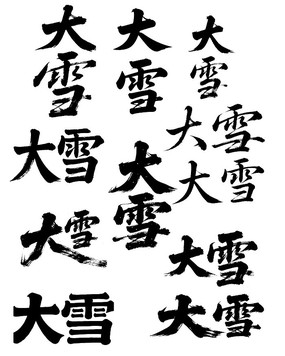 大雪
大雪
大雪
大雪
大雪
大雪
大雪
大雪
大雪
大雪
大雪